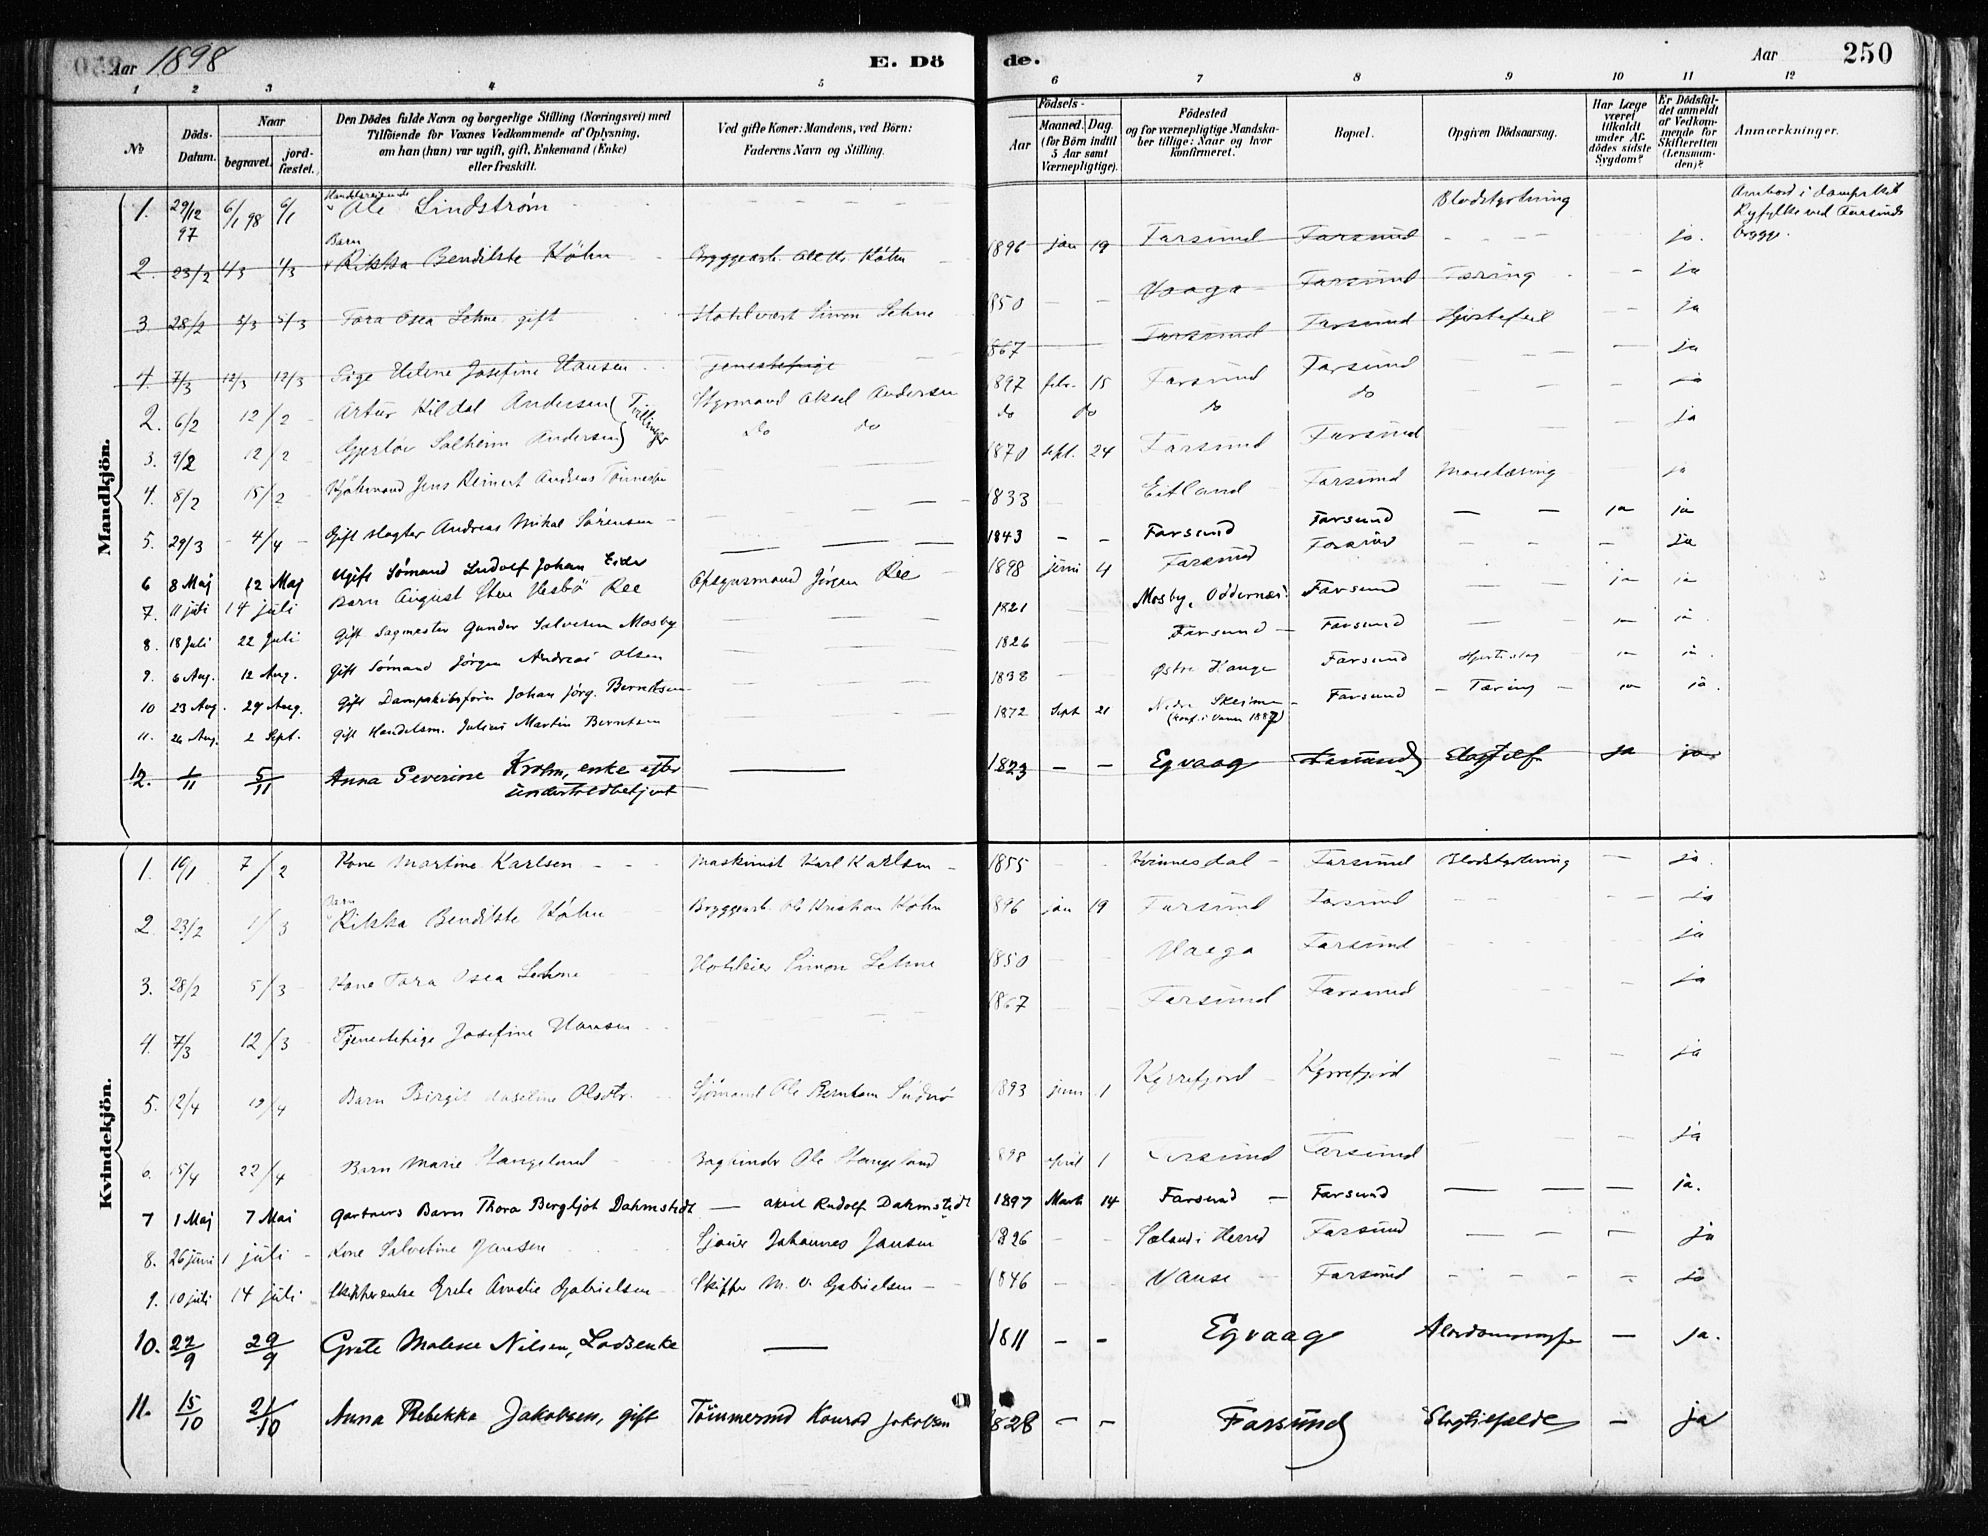 Aar 1898
E. Döde.
Aar 250
1 2 3 4 5 6 7 8 9 10 11 12
№
Döds-Datum.
Naar
begravet.
jordfæstet.
Den Dödes fulde Navn og borgerlige Stilling (Næringsvei) med
Tilföiende for Voxnes Vedkommende af Oplysning,
om han (hun) var ugift, gift, Enkemand (Enke)
eller fraskilt.
Ved gifte Koner: Mandens, ved Börn:
Faderens Navn og Stilling.
Födsels-
Aar
Maaned. Dag.
(for Börn indtil
5 Aar samt
Værnepligtige).
Födested
og for værnepligtige Mandska-
ber tillige: Naar og hvor
konfirmeret.
Bopæl.
Opgiven Dödsaarsag.
Har Læge
været
tilkaldt
under Af-
dödes sidste
Sygdom?
Er Dödsfal-
det anmeldt
af Vedkom-
mende for
Skifteretten
(Lensman-
den)?
Anmærkninger.
Mandkjön.
1. 29/12 97 6/1 98 6/1 Handelsreisende Ole Lindström Blodstyrtning Ombord i dampskibet Ryfylke ved Farsunds brygge.
2. 23/2 4/3 4/3 Barn Rikka Bendikte Köhn Bryggearb. Köhn 1896 jan 19 Farsund Farsund ja.
3 28/2 5/3 5/3 Tora Osea Lehne gift Hotelvært Simon Lehne 1850 Vaage Farsund Tæring ja
4 7/3 12/3 12/3 Pige Helene Josefine Hansen Tjenestepige 1867 Farsund Farsund Hjertefeil ja
2. 6/2 12/2 Artur Kildal Andersen (Tvillinger) Styrmand Aksel Andersen 1897 febr. 15 Farsund Farsund ja
3. 9/2 12/2 Solheim Andersen do do do do do do ja
4. 8/2 15/2 Jens Reinert Andreas Tönnesen 1870 sept. 24 Farsund Farsund ja
5. 29/3 4/4 Gift slagter Andreas Mikal Sörensen 1833 Eitland Farsund ja
6 8 Maj 12 Maj Ugift Sömand Ludolf Johan Eide 1843 Farsund Farsund ja ja
7. 11 juli 14 juli Barn August Sten Hesbö Ree Opsynsmand Jörgen Ree 1898 juni 4 Farsund Farsund ja
8. 18 Juli 22 Juli Gift Sagmester Gunder Salvesen Mosby 1821 Mosby, Oddernes. Farsund ja ja
9. 6 Aug. 12 Aug. Gift Sömand Jörgen Andreas Olsen 1826 Farsund Farsund ja
10 23 Aug. 29 Aug. Gift Dampskibsförer Johan Jörg. Berntsen 1838 Östre Hauge Farsund Hjerteslag ja
11. 26 Aug. 2 Sept. Gift Handelsm. Julius Martin Berntsen 1872 Sept 21 Nedre Skeime (konf. i Vanse 1887) Farsund Tæring ja.
12. 1/11 5/11 Anna Severine Krohn, enke efter undertoldbetjent 1823 Egvaag Farsund Slagtilf. ja ja
Kvindekjön.
1. 19/1 7/2 Kone Martine Karlsen Maskinist Karl Karlsen 1855 Kvinnesdal Farsund Blodstyrtning ja.
2. 23/2 1/3 Barn Rikka Bendikte Köhn Bryggearb. Ole Kristian Köhn 1896 jan 19 Farsund Farsund ja
3. 28/2 5/3 Kone Tora Osea Lehne Hoteleier Simon Lehne 1850 Vaage Farsund ja
4. 7/3 12/3 Tjenestepige Josefine Hansen 1867 Farsund Farsund ja
5. 12/4 19/4 Barn Birgit Olsdtr. Sjömand Ole Berntsen 1893 juni 1 Kjörrefjord Kjörrefjord ja
6. 15/4 22/4 Barn Marie Hangeland Bogbinder Ole Hangeland 1898 april 1 Farsund Farsund ja
7 1 Maj 7 Mai Gartners Barn Thora Bergljot Dahmstedt Aksel Rudolf Dahmstedt 1897 Marts 14 Farsund Farsund ja.
8. 26 juni 1 juli Kone Salvetine Jansen Sjauer Johannes Jansen 1826 Sæland i Herred Farsund ja
9. 10 juli 14 juli Skipperenke Grete Amalie Gabrielsen Skipper M. v. Gabrielsen 1846 Vanse Farsund ja
10. 22/9 29/9 Grete Malene Nilsen, Lodsenke 1811 Egvaag ja.
11. 15/10 21/10 Anna Rebekka Jakobsen, gift Tömmermd Konrad Jakobsen 1828 Farsund Slagtilfælde ja